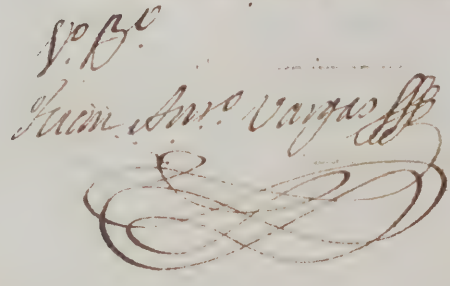 V.º B.º
Juan Anto Vargas